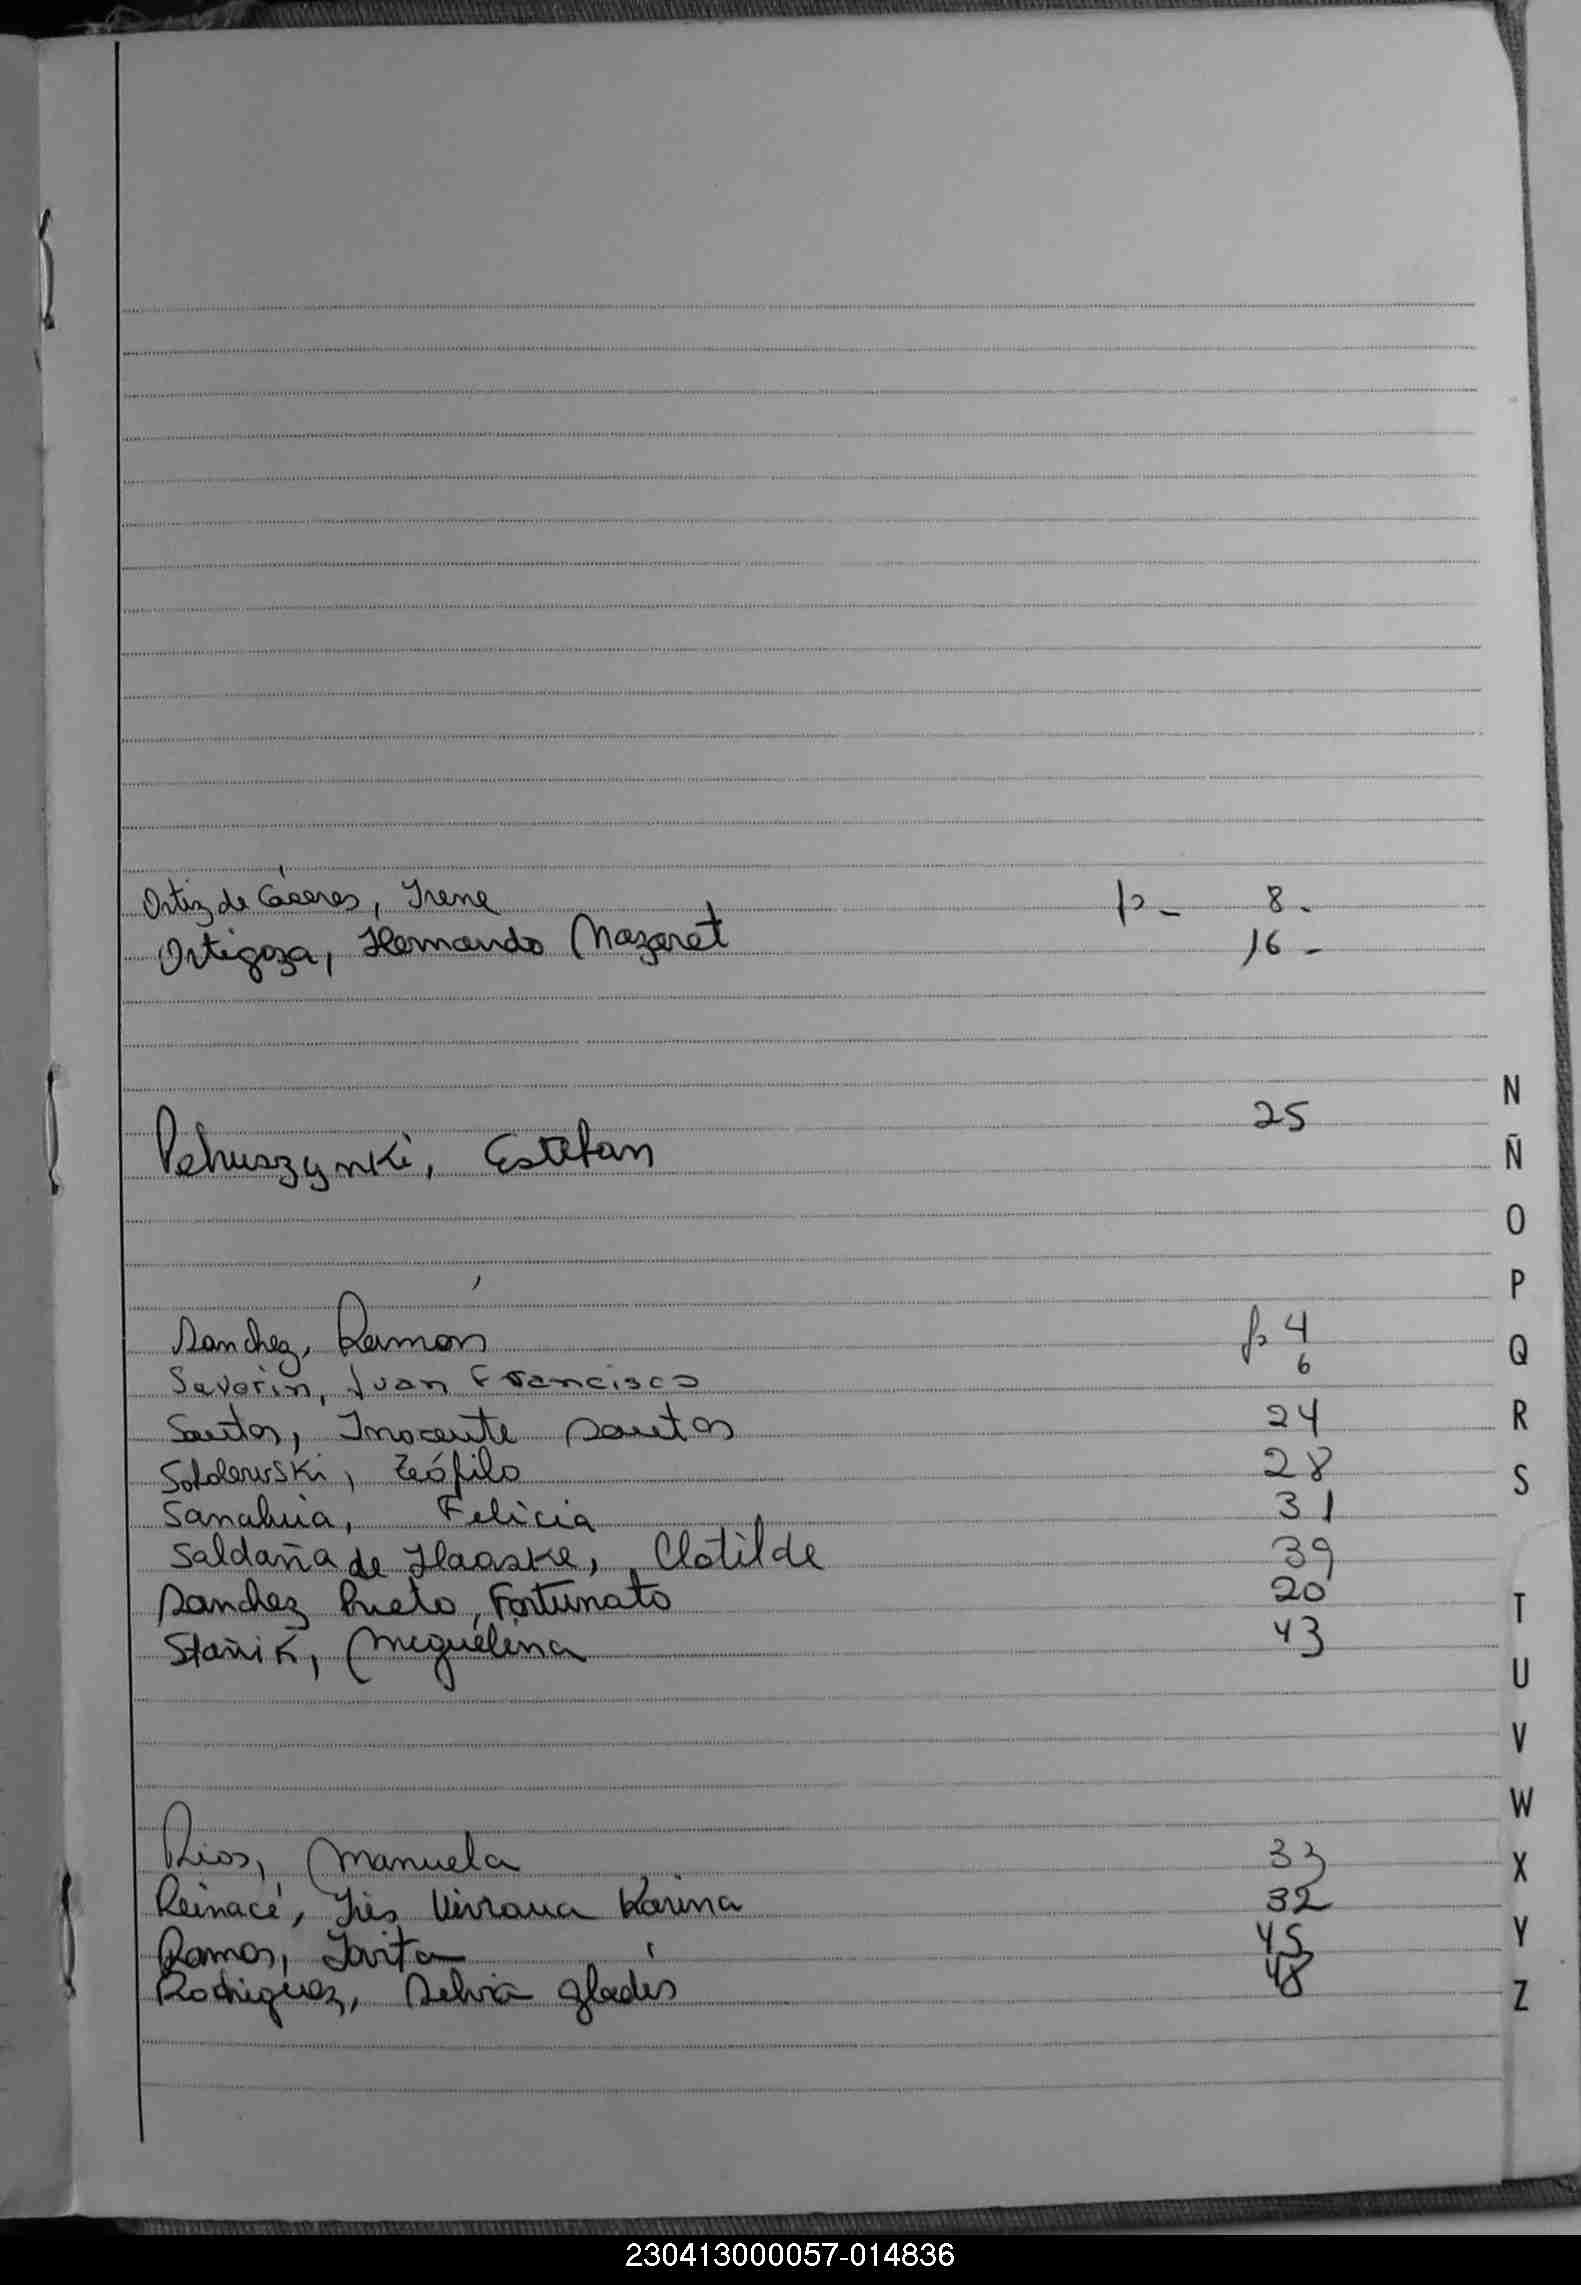 Ortiz de Cáceres, Irene p - 8 -
Ortigoza, Hernando Nazaret 16 -
25
Pehuszynki, Estefan
Sanchez, Ramón p 4
Severin, Juan Francisco 6
Santos, Inocente Santos 24
Teófilo 28
Sanahuia, Felicia 31
Saldaña de Haaske, Clotilde 39
Sanchez Prieto, Fortunato 20
Stañik, Miguelina 43
Rios, Manuela 33
Reinacé, Viviana Karina 32
Ramos, Jovita 45
Rodriguez, Silvia Gladis 48
N
Ñ
O
P
Q
R
S
T
U
V
W
X
Y
Z
230413000057-014836